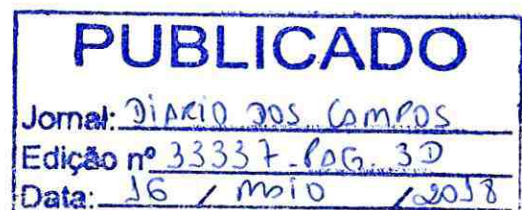 PUBLICADO
Jornal: DIARIO DOS CAMPOS
Edição nº 33337 - PAG. 3D
Data: 16 / maio / 2018